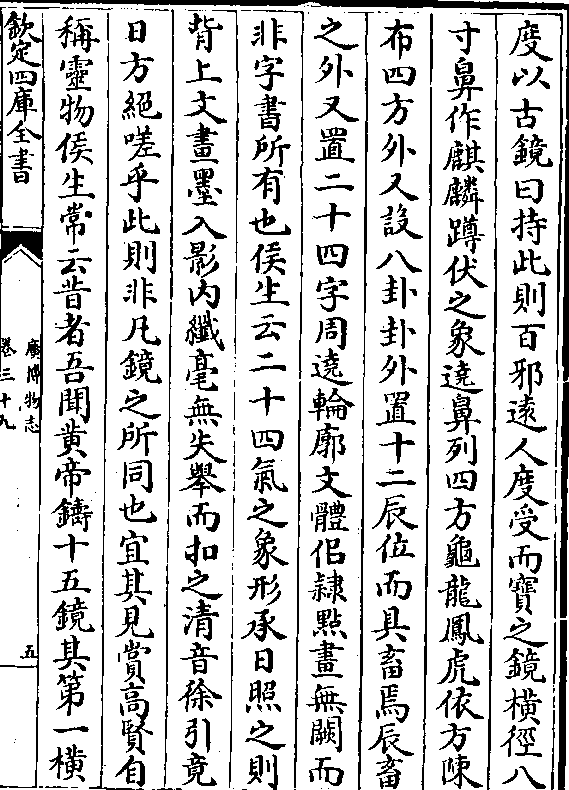 度以古鏡曰持此則百邪遠人度受而寶之鏡橫徑八
寸鼻作麒麟蹲伏之象遶鼻列四方龜龍鳳虎依方陳
布四方外又設八卦卦外置十二辰位而具畜焉辰畜
之外又置二十四字周遶輪廓文體侣隷㸃畫無闕而
非字書所有也侯生云二十四氣之象形承日照之則
背上文畫墨入影内纎毫無失舉而扣之清音徐引竟
日方絕嗟乎此則非凡鏡之所同也宜其見賞高賢自
稱靈物侯生常云昔者吾聞黄帝鑄十五鏡其第一橫
欽定四庫全書
廣博物志
卷三十九
五